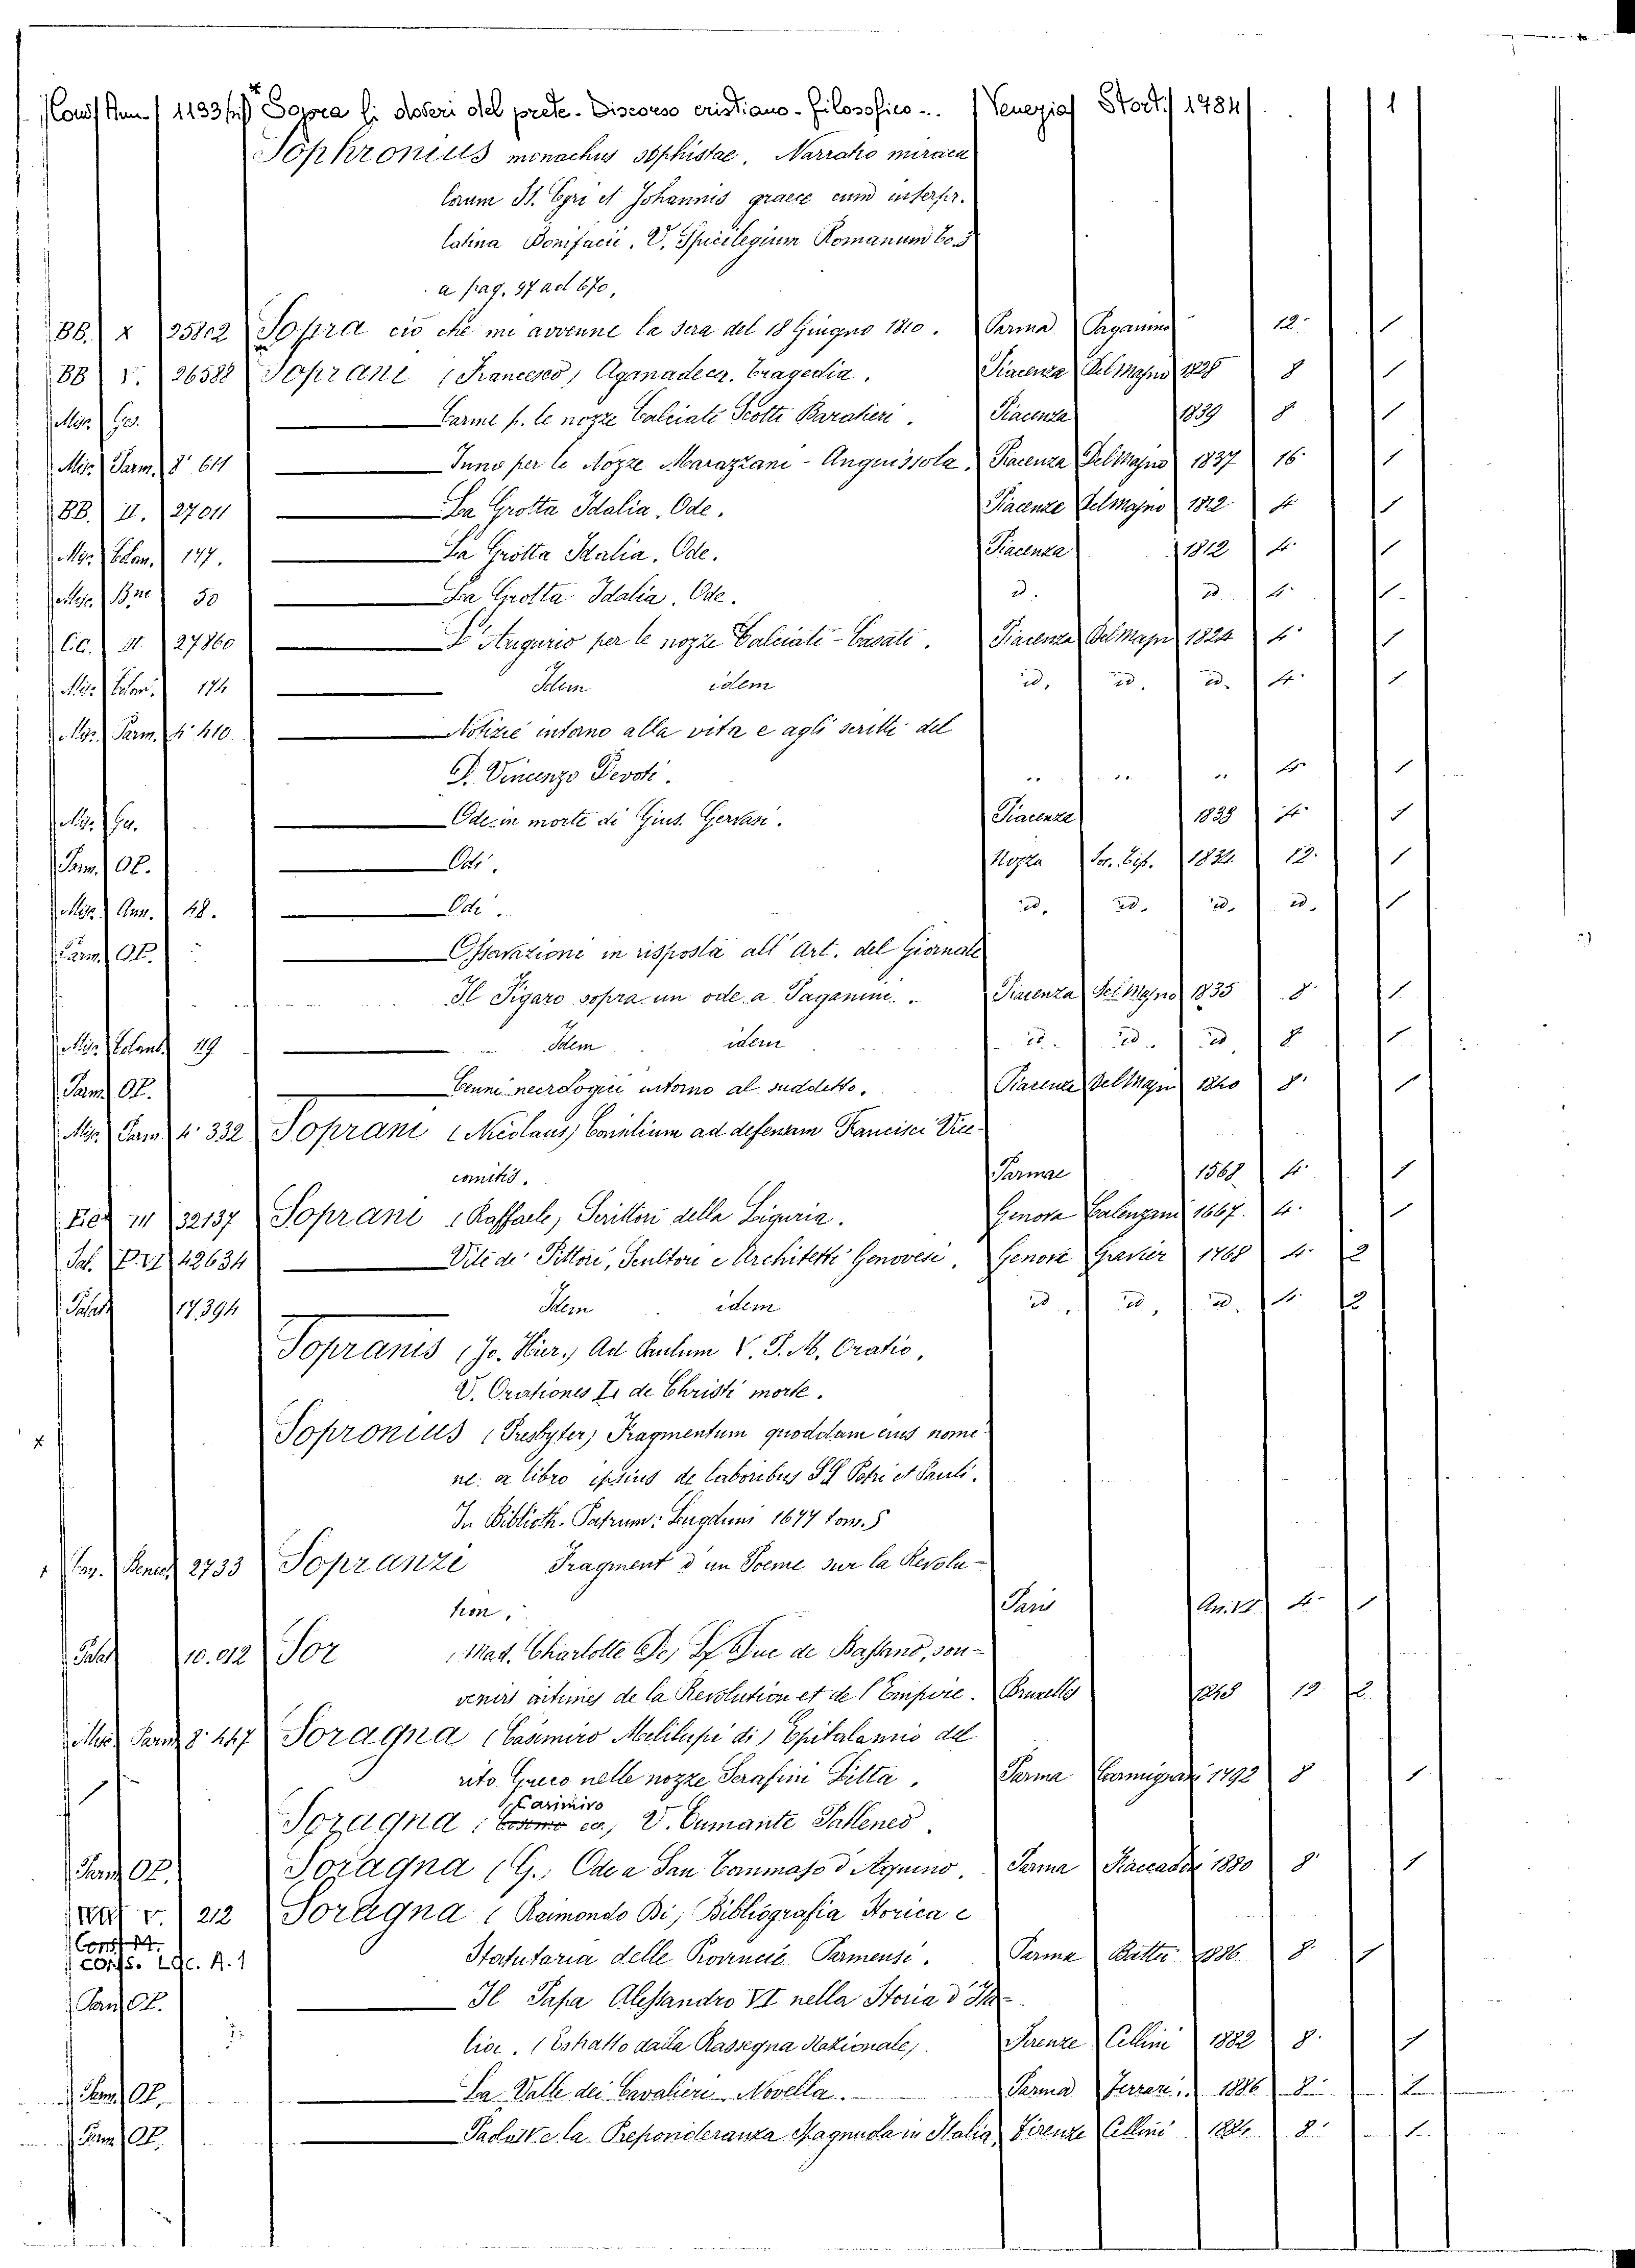 1133 bis Sopra li doveri del prete. Discorso cristiano-filosofico... Venezia Storti 1784 1
Sophronius monachus sophistae. Narratio miracu
lorum St. Cyri et Johannis graece cum interpr.
latina Bonifacii. V. Spicilegium Romanum to. 3
a pag. 97 ad 670,
BB. X 25802 Sopra ciò che mi avvenne la sera del 18 Giugno 1810. Parma Paganino 12. 1
BB V. 26588 Soprani (Francesco) Aganadeca. Tragedia. Piacenza Del Majno 1825 8 1
Misc. Ger. Carme p. le nozze Calciati Scotti Baratieri. Piacenza 1839 8 1
Misc. Parm. 8° 611 Inno per le Nozze Marazzani-Anguissola. Piacenza Del Majno 1837 16. 1
BB. II. 27011 La Grotta Idalia. Ode. Piacenza Del Majno 1812 4 1
Misc. Colom. 147. La Grotta Idalia. Ode. Piacenza 1812 4. 1
Misc. Bne 50 La Grotta Idalia. Ode. d. d. 4. 1
CC. III 27860 L'Augurio per le nozze Calciati-Casati. Piacenza Del Majno 1824 4. 1
Misc. Colom. 174 Idem idem id. id. id. 4. 1
Misc. Parm. 4° 410. Notizie intorno alla vita e agli scritti del
P. Vincenzo Devoti. .. .. .. 4. 1
Misc. Ger. Ode in morte di Gius. Gervasi. Piacenza 1838 4. 1
Parm. Op. Odi. Nozza Soc. Tip. 1832 12. 1
Misc. Ann. 48. Odi. id. id. id. id. 1
Parm. Op. Osservazioni in risposta all'Art. del Giornale
Il Figaro sopra un ode a Paganini. Piacenza Del Majno 1835 8. 1
Misc. Colomb. 29 Idem idem id. id. id. 8. 1
Parm. Op. Cenni necrologici intorno al suddetto. Piacenza Del Majno 1840 8. 1
Misc. Parm. 4° 332 Soprani (Nicolaus) Consilium ad defensam Francisci Vice-
comitis. Parmae 1568 4. 1
III 32137 Soprani (Raffaele) Scrittori della Liguria. Genova Calenzani 1667. 4. 1
Sal. P. VI 42634 Vite de' Pittori, Scultori e Architetti Genovesi. Genova Gravier 1768 4. 2
Palat 17.394 Idem idem id. id. id. 4. 2
Sopranis (Jo. Hier.) Ad Paulum V. P. M. Oratio.
V. Orationes LI de Christi morte.
Sopronius (Presbyter) Fragmentum quoddam eius nomi-
ne: ex libro ipsius de laboribus SS Petri et Pauli.
In Biblioth. Patrum: Lugduni 1677 tom. 8
2733 Sopranzi Fragment d'un Poeme sur la Revolu-
tion. Paris An. 12 4. 1
Palat 10.012 Sor (Mad. Charlotte De) Le Duc de Bassano, sou-
venirs intimes de la Revolution et de l'Empire. Bruxelles 1843 12. 2
Misc. Parm. 8° 447 Soragna (Casimiro Melilupi di) Epitalamio del
rito Greco nelle nozze Serafini Litta. Parma Carmignani 1792 8 1
Casimiro
Soragna V. Eumante Pallenes.
Parm. Op. Soragna (G.) Ode a San Tommaso d'Aquino. Parma Fiaccadori 1880 8. 1
V. 212 Soragna (Raimondo Di) Bibliografia Storica e
Cons. Loc. A. 1 Statutaria delle Provincie Parmensi. Parma Battei 1886. 8. 1
Parm. Op. Il Papa Alessandro VI nella Storia d'Ita-
lia. (Estratto dalla Rassegna Nazionale). Firenze Cellini 1882 8. 1
Parm. Op. La Valle dei Cavalieri. Novella. Parma Ferrari 1886 8. 1
Parm. Op. e la Preponderanza Spagnuola in Italia Firenze Cellini 1884 8. 1